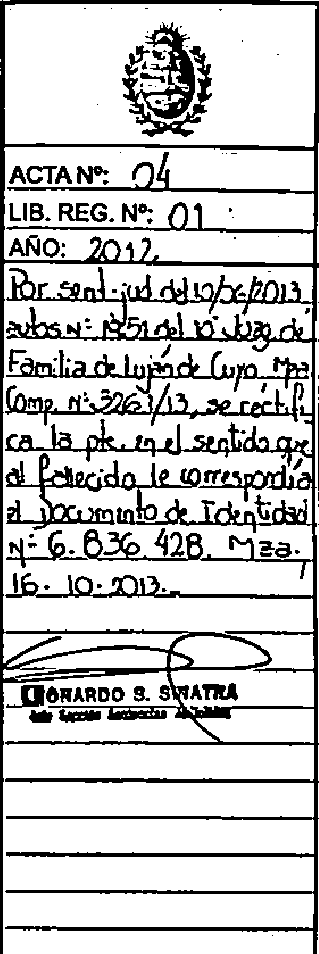 ACTA Nº: 04
LIB. REG. Nº: 01
AÑO: 2012
Por sent-jud del 10/06/2013
autos Nº 1951 del 10º Juzg. de
Familia de Luján de Cuyo. Mza
Comp. Nº 3263/13, se rectifi
ca la pte. en el sentido que
al fallecido le correspondía
el Documento de Identidad
Nº 6.836.428. Mza.
16-10-2013.
LEONARDO S. SINATRA